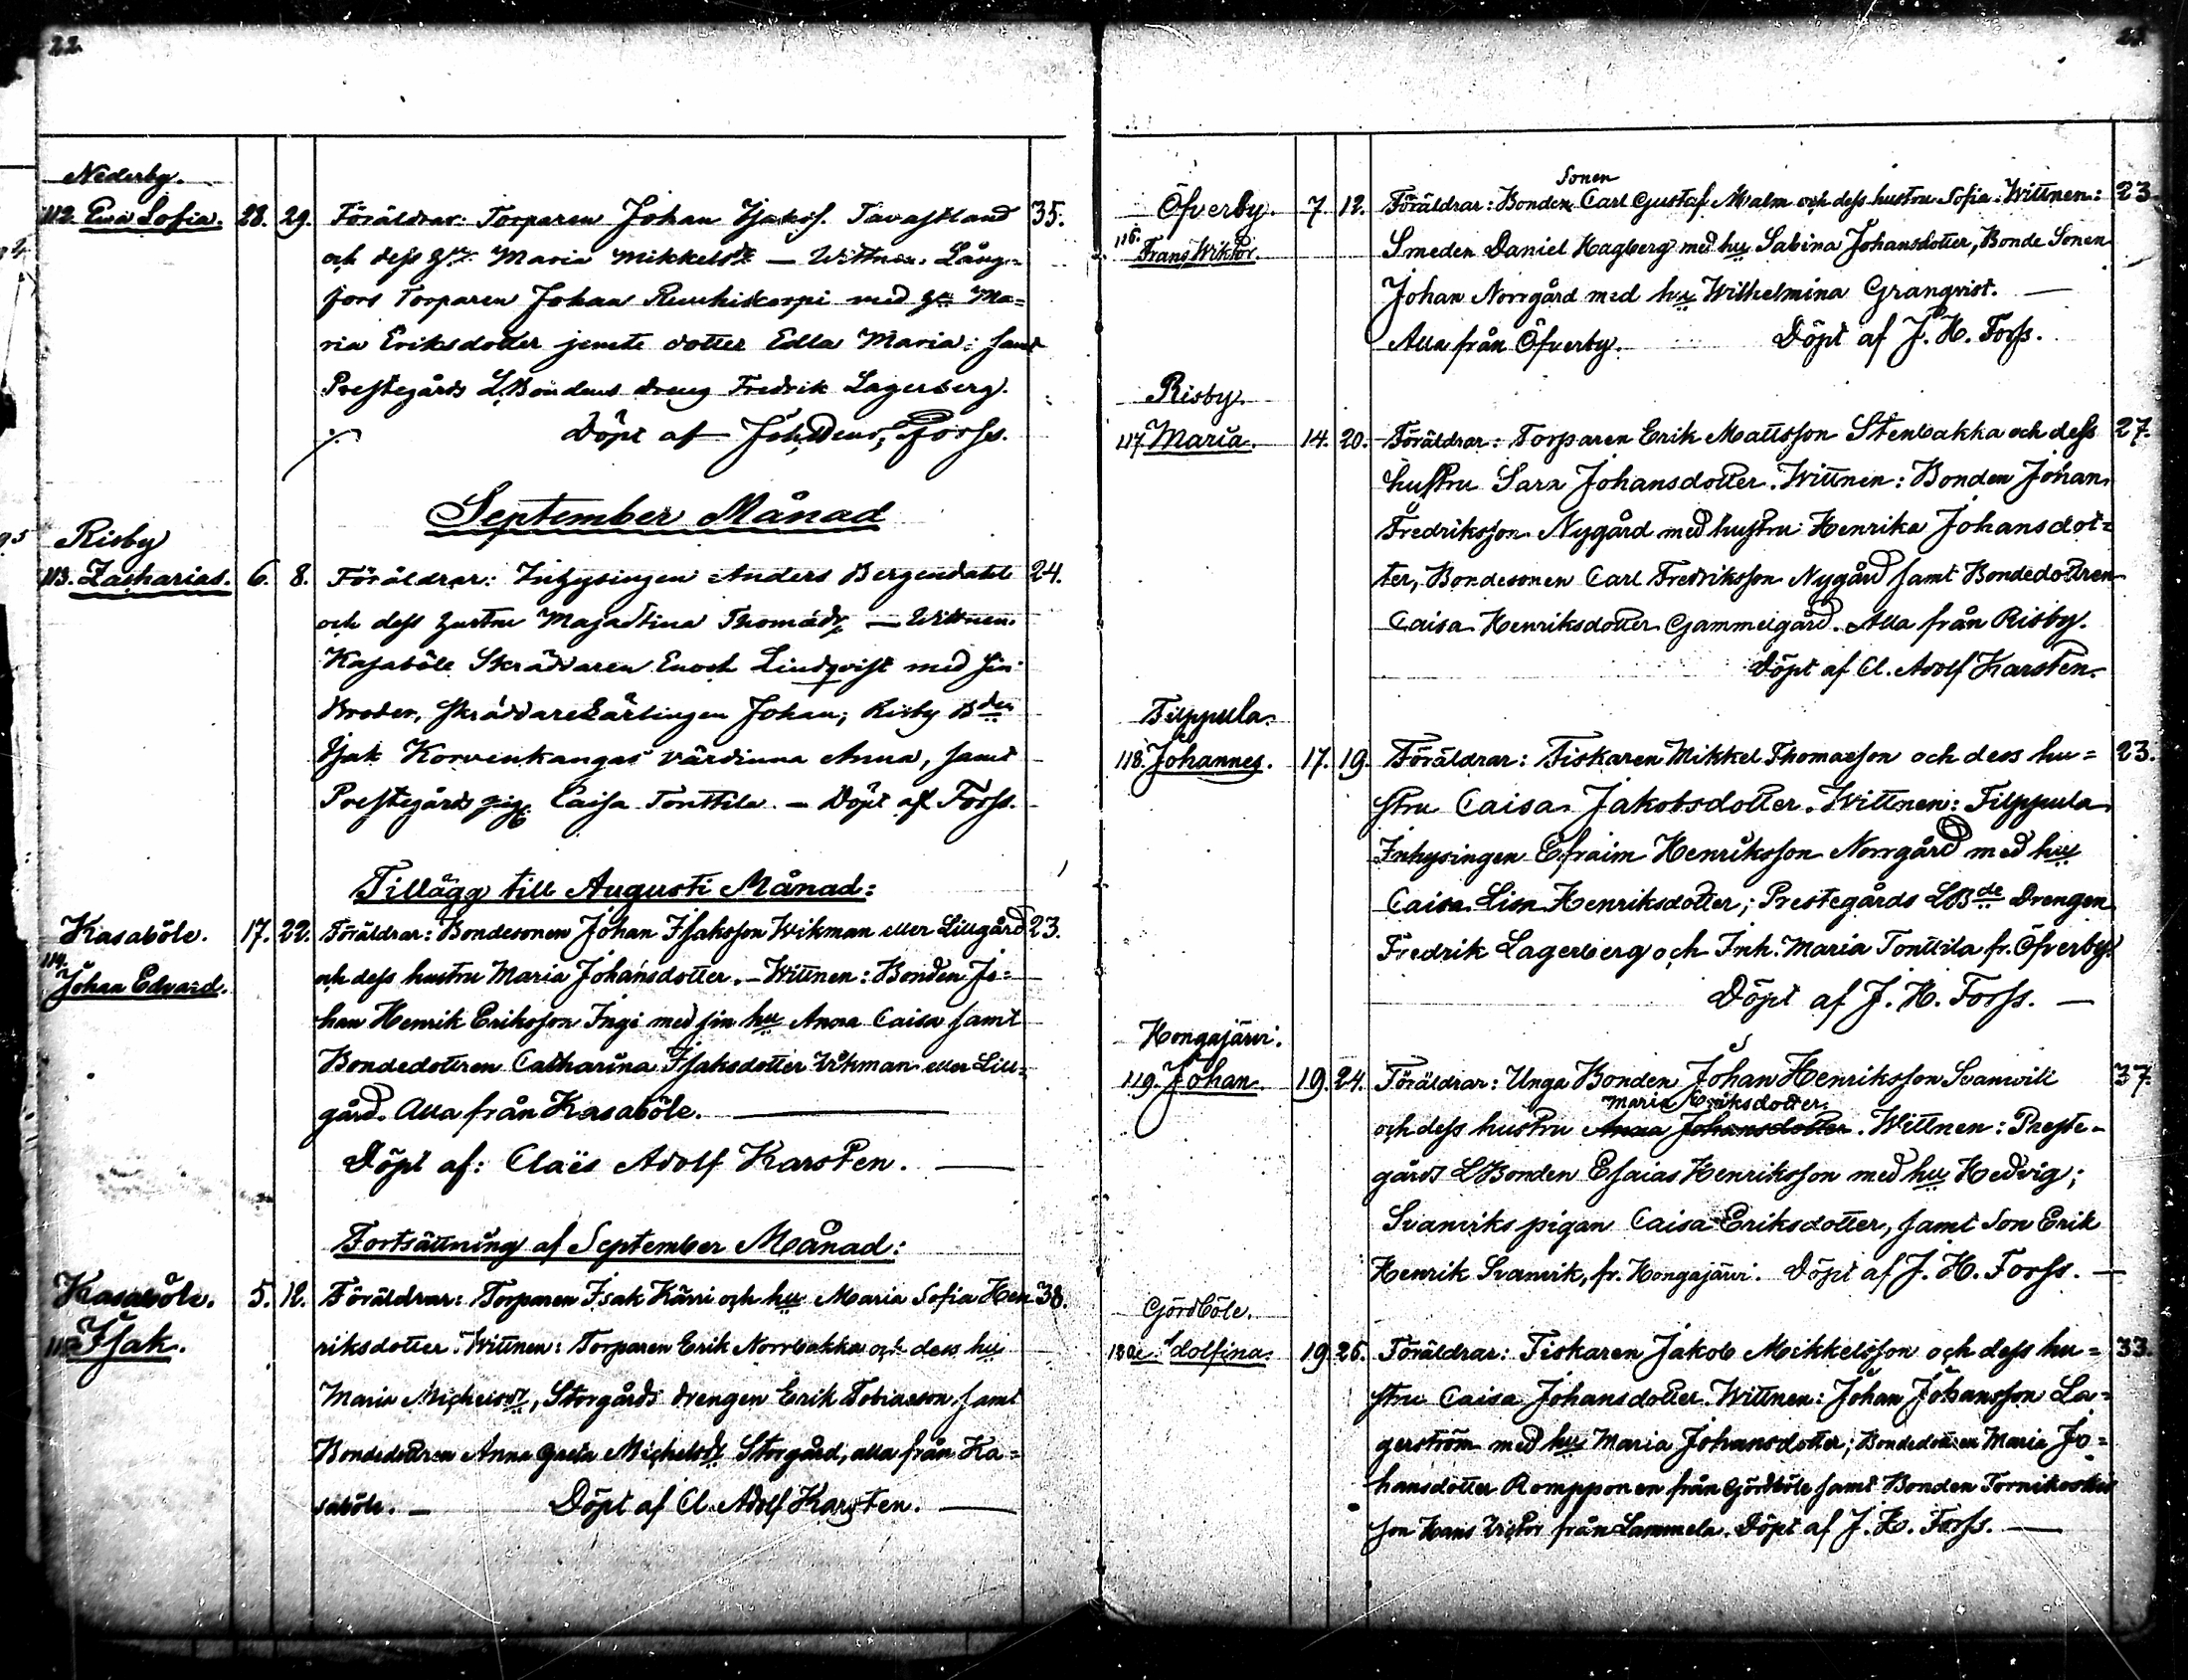 22.
Nederby.
112. Eva Sofia. 28. 29. Föräldrar: Torparen Johan Isaksf. Tavastland 35.
och dess hu Maria Mikkelsdr — Wittnen. Lång-
fors Torparen Johan Ruuhikorpi med hu Ma=
ria Eriksdotter jemte dotter Edla Maria; samt
Prestegårds L.Bondens dreng Fredrik Lagerberg.
Döpt af Joh. Henr. Forss.
September Månad
Risby
113. Zacharias. 6. 8. Föräldrar: Inhysingen Anders Bergendahl 24.
och dess hustru Maja Stina Thomædr — Wittnen.
Kasaböle Skräddaren Enoch Lindqvist med sin
Broder, Skräddarelärlingen Johan; Risby Bden
Isak Korvenkangas värdinna Anna, samt
Prestegårds pig. Caisa Tonttila. — Döpt af Forss.
Tillägg till Augusti Månad:
Kasaböle. 17. 22. Föräldrar: Bondesonen Johan Isaksson Wikman eller Lillgård 23.
114.
Johan Edvard. och dess hustru Maria Johansdotter. — Wittnen: Bonden Jo=
han Henrik Eriksson Ingi med sin hu Anna Caisa samt
Bondedottren Catharina Isaksdotter Wikman eller Lill=
gård. Alla från Kasaböle. —
Döpt af: Claës Adolf Karsten. —
Fortsättning af September Månad:
Kasaböle. 5. 12. Föräldrar: Torparen Isak Kärri och hu Maria Sofia Hen 38.
115. Isak. riksdotter. Wittnen: Torparen Erik Norrbakka och dess hu
Maria Michelsdr, Storgårds drengen Erik Tobiasson samt
Bondedottren Anna Greta Michelsdr Storgård, alla från Ka=
saböle. — Döpt af Cl. Adolf Karsten. —
Sonen
Öfverby. 7. 12. Föräldrar: Bonden Carl Gustaf Malm och dess hustru Sofia. Wittnen: 23
116.
Frans Wiktor. Smeden Daniel Hagberg med hu Sabina Johansdotter, Bonde Sonen
Johan Norrgård med hu Wilhelmina Granqvist. —
Alla från Öfverby. Döpt af J. H. Forss.
Risby.
117. Maria. 14. 20. Föräldrar: Torparen Erik Mattsson Stenbakka och dess 27.
hustru Sara Johansdotter. Wittnen: Bonden Johan
Fredriksson Nygård med hustru Henrika Johansdot=
ter, Bondesonen Carl Fredriksson Nygård samt Bondedottren
Caisa Henriksdotter Gammelgård. Alla från Risby.
Döpt af Cl. Adolf Karsten.
Filppula.
118. Johannes. 17. 19. Föräldrar: Fiskaren Mikkel Thomasson och dess hu= 23.
stru Caisa Jakobsdotter. Wittnen: Filppula
Inhysingen Efraim Henriksson Norrgård med hu
Caisa Lisa Henriksdotter; Prestegårds LBde Drengen
Fredrik Lagerberg och Inh. Maria Tonttila fr. Öfverby.
Döpt af J. H. Forss. —
Hongajärvi.
119. Johan. 19. 24. Föräldrar: Unga Bonden Johan Henriksson Svanvik 37.
Maria Eriksdotter.
och dess hustru Anna Johansdotter. Wittnen: Preste-
gårds LBonden Esaias Henriksson med hu Hedvig;
Svanviks pigan Caisa Eriksdotter, samt Son Erik
Henrik Svanvik, fr. Hongajärvi. Döpt af J. H. Forss. —
Gördböle.
120. Adolfina. 19. 26. Föräldrar: Fiskaren Jakob Mikkelsson och dess hu= 33.
stru Caisa Johansdotter. Wittnen: Johan Johansson La=
gerström med hu Maria Johansdotter; Bondedottren Maria Jo=
hansdotter Romppanen från Gördböle samt Bonden Tornikoskis
son Hans Victor från Lammela. Döpt af J. H. Forss. —